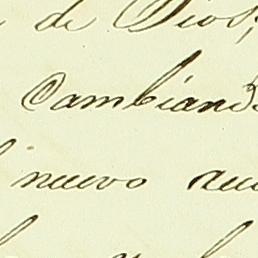 de Dios,
Cambiand
nuevo